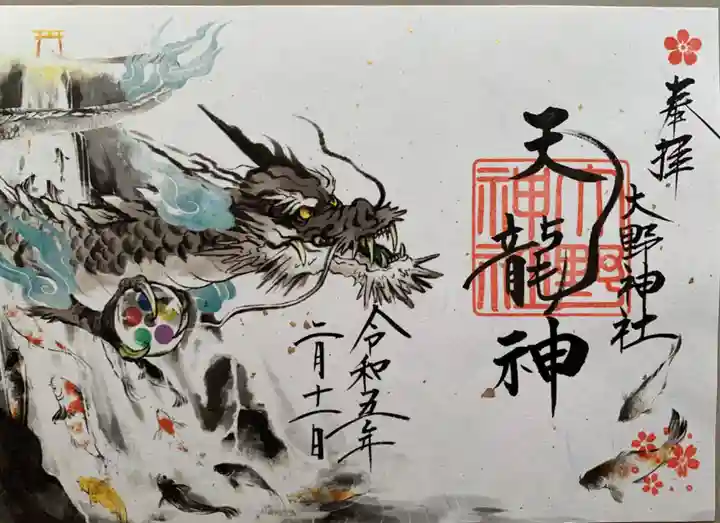 奉拝
大野神社
天龍神
大野神社
令和五年
二月十一日